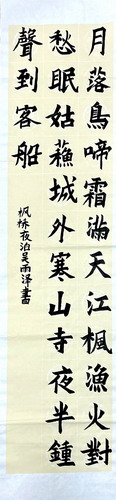 月落鳥啼霜滿天江楓漁火對
愁眠姑蘇城外寒山寺夜半鍾
聲到客船
枫桥夜泊吴雨泽書